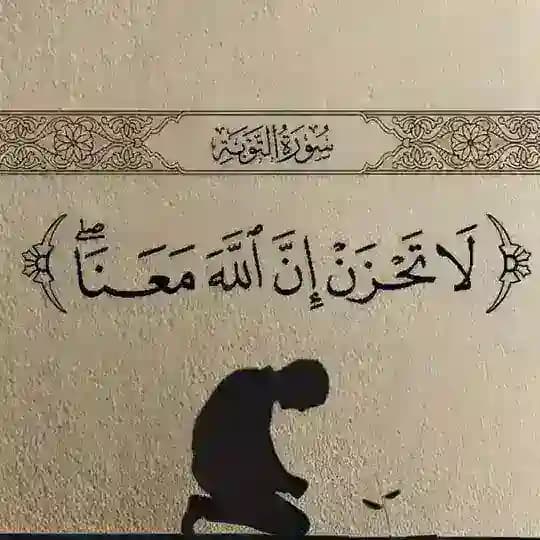 سُورَةُ التَّوْبَة
﴿لَا تَحْزَنْ إِنَّ ٱللَّهَ مَعَنَاۖ﴾